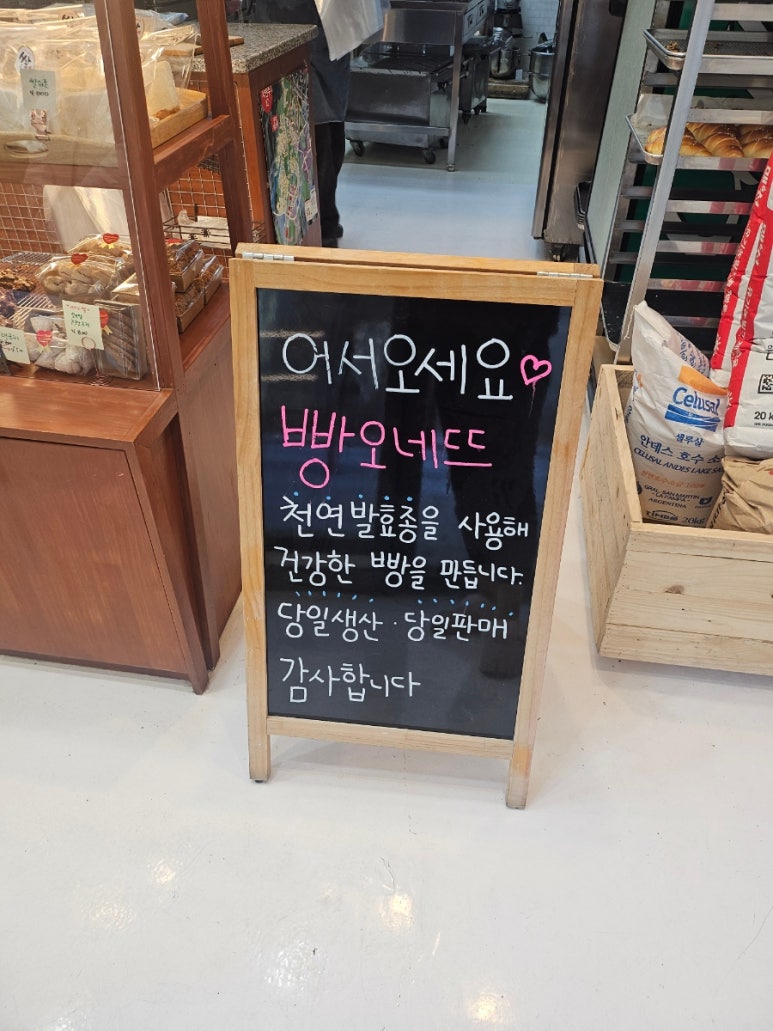 어서오세요♡
빵오네뜨
천연발효종을 사용해
건강한 빵을 만듭니다.
당일생산·당일판매
감사합니다
Celusal
셀루살
안데스 호수 소
CELUSAL ANDES LAKE SA
GRAL. SAN MARTIN
LA PAMPA
ARGENTINA
TIMBO
20kg
20 k